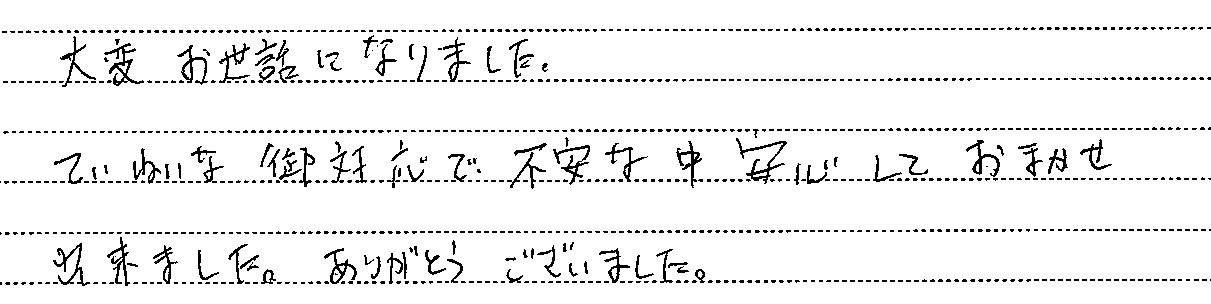 大変 お世話になりました。
ていねいな 御対応で 不安な中 安心して おまかせ
出来ました。ありがとう ございました。